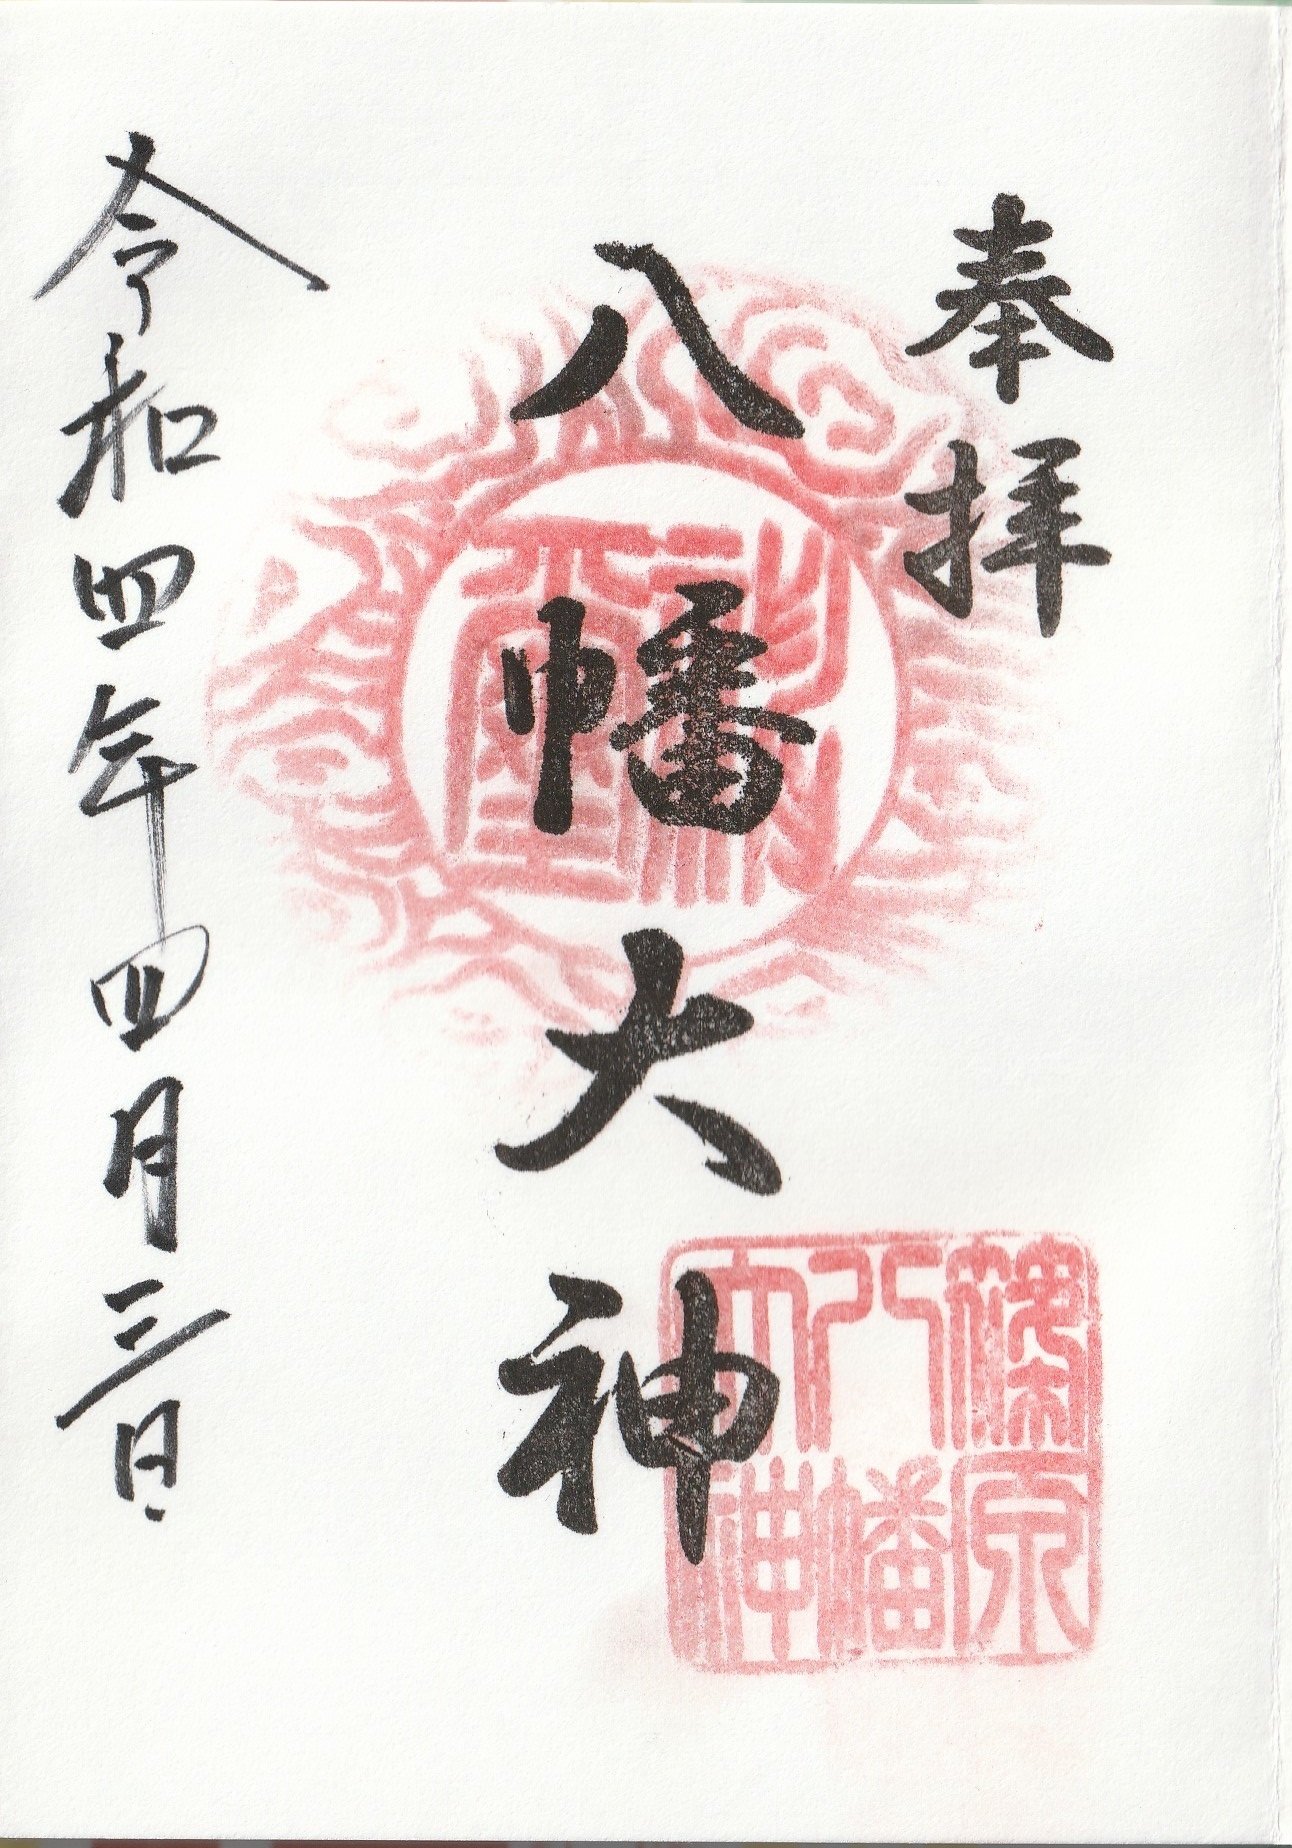 奉拝
八幡大神
神璽
篠原
八幡
大神
令和四年四月三日